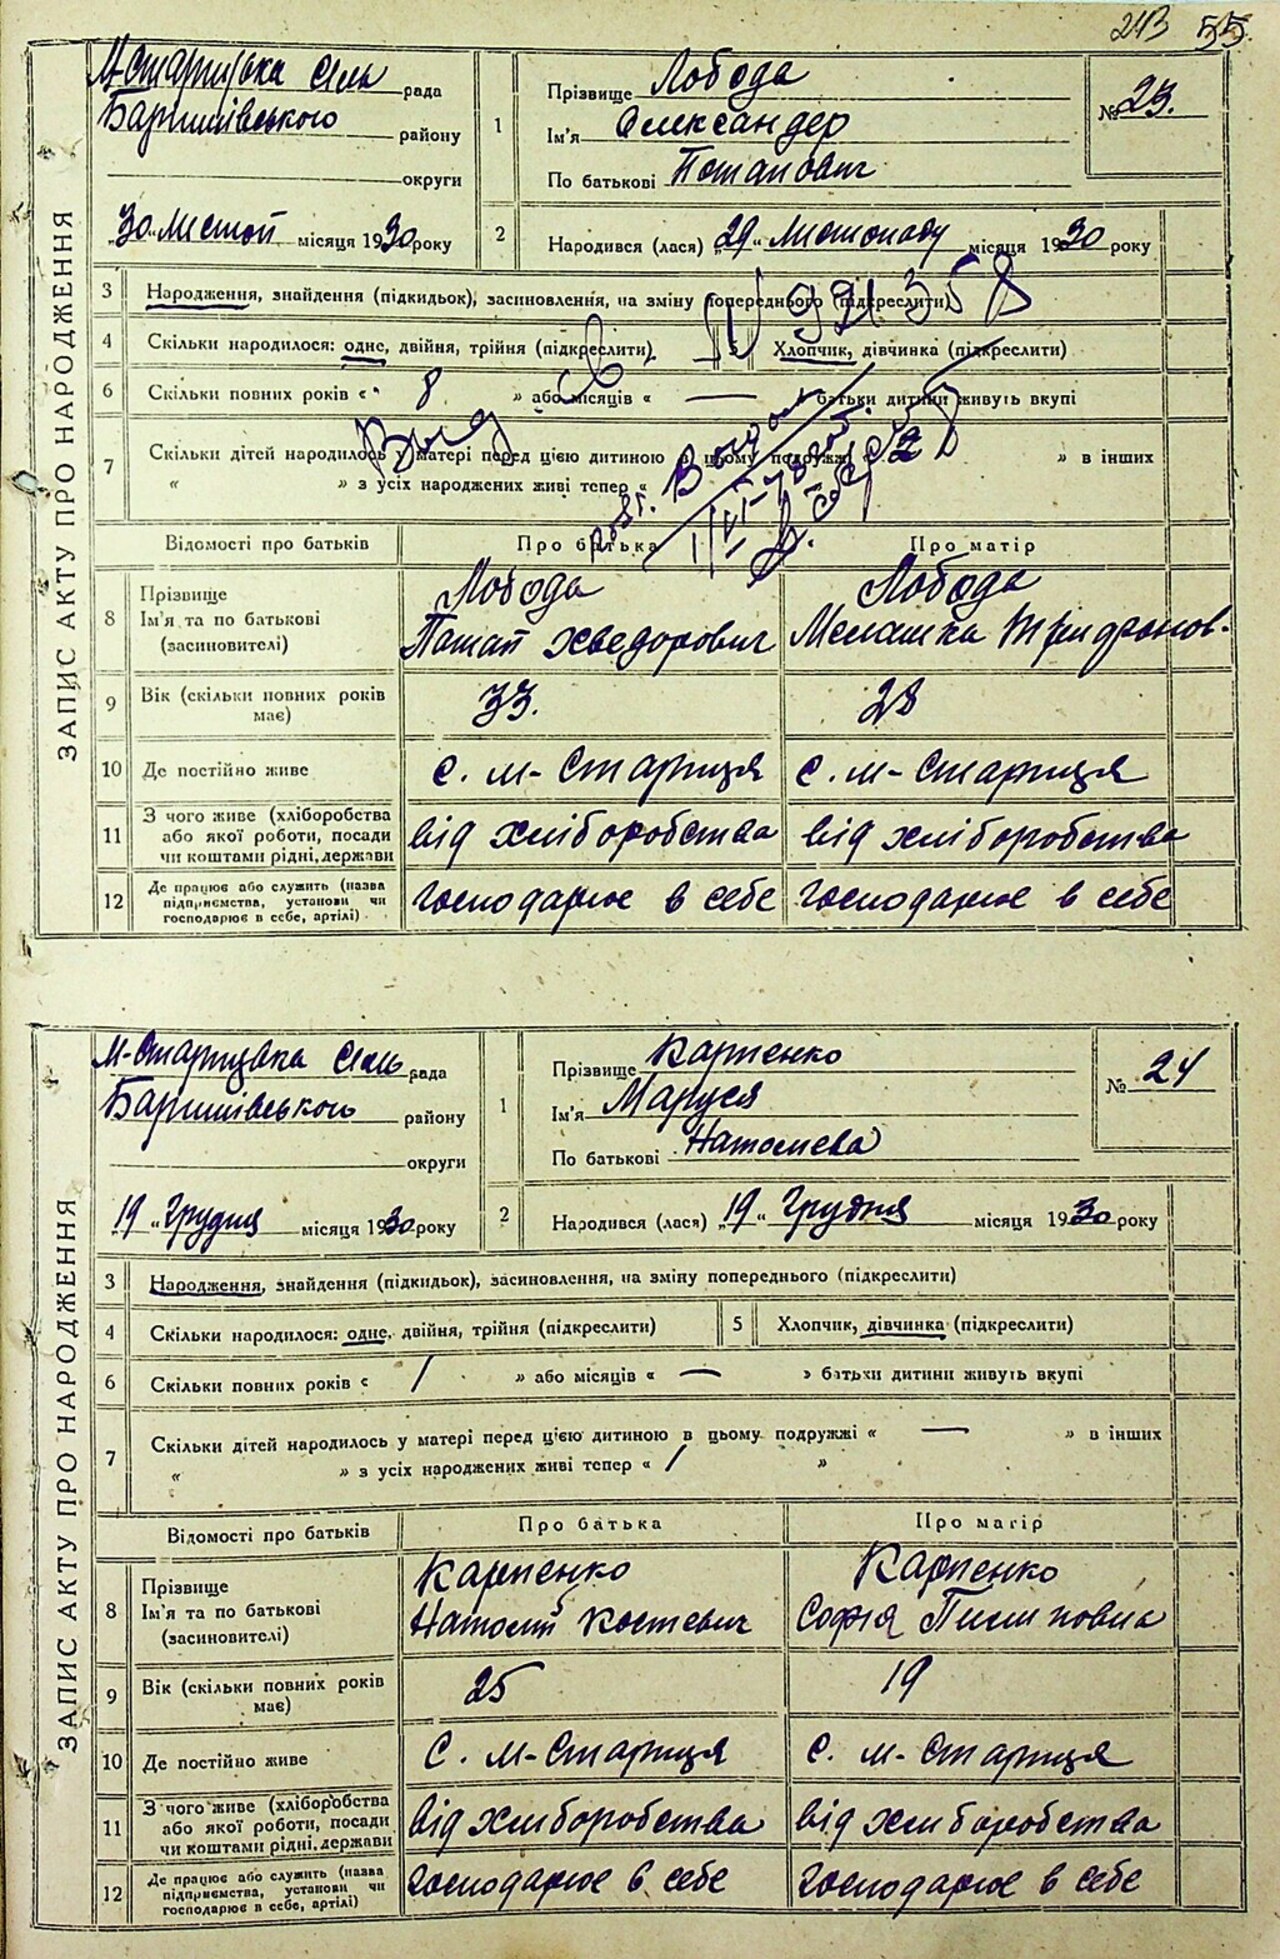 243 55.
ЗАПИС АКТУ ПРО НАРОДЖЕННЯ
М-Старицька сіль рада
Баришівського району
округи
„30“ листоп місяця 1930 року
1
Прізвище Лобода
Ім'я Олександер
По батькові Потапович
№ 23.
2
Народився (лася) „29“ листопаду місяця 1930 року
3 Народження, знайдення (підкидьок), засиновлення, на зміну попереднього (підкреслити)
4 Скільки народилося: одне, двійня, трійня (підкреслити). 5 Хлопчик, дівчинка (підкреслити)
921358
6 Скільки повних років « 8 » або місяців « — » батьки дитини живуть вкупі
7 Скільки дітей народилось у матері перед цією дитиною в цьому подружжі « 2 » в інших
« » з усіх народжених живі тепер «
Выд
Відомості про батьків Про батька Про матір
8 Прізвище Лобода Лобода
Ім'я та по батькові Потап Хведорович Мелашка
(засиновителі)
9 Вік (скільки повних років 33. 28
має)
10 Де постійно живе с. М-Стариця с. М-Стариця
11 З чого живе (хліборобства
або якої роботи, посади від хліборобства від хліборобства
чи коштами рідні, держави
12 Де працює або служить (назва
підприємства, установи чи господарює в себе господарює в себе
господарює в себе, артілі)
ЗАПИС АКТУ ПРО НАРОДЖЕННЯ
М-Старицька сіль рада
Баришівського району
округи
„19“ Грудня місяця 1930 року
1
Прізвище Карпенко
Ім'я Маруся
По батькові Натолієва
№ 24
2
Народився (лася) „19“ Грудня місяця 1930 року
3 Народження, знайдення (підкидьок), засиновлення, на зміну попереднього (підкреслити)
4 Скільки народилося: одне, двійня, трійня (підкреслити) 5 Хлопчик, дівчинка (підкреслити)
6 Скільки повних років « 1 » або місяців « — » батьки дитини живуть вкупі
7 Скільки дітей народилось у матері перед цією дитиною в цьому подружжі « — » в інших
« » з усіх народжених живі тепер « 1 »
Відомості про батьків Про батька Про матір
8 Прізвище Карпенко Карпенко
Ім'я та по батькові Натолій Костевич Софія Пилиповна
(засиновителі)
9 Вік (скільки повних років 25 19
має)
10 Де постійно живе с. М-Стариця с. М-Стариця
11 З чого живе (хліборобства
або якої роботи, посади від хліборобства від хліборобства
чи коштами рідні, держави
12 Де працює або служить (назва
підприємства, установи чи господарює в себе господарює в себе
господарює в себе, артілі)